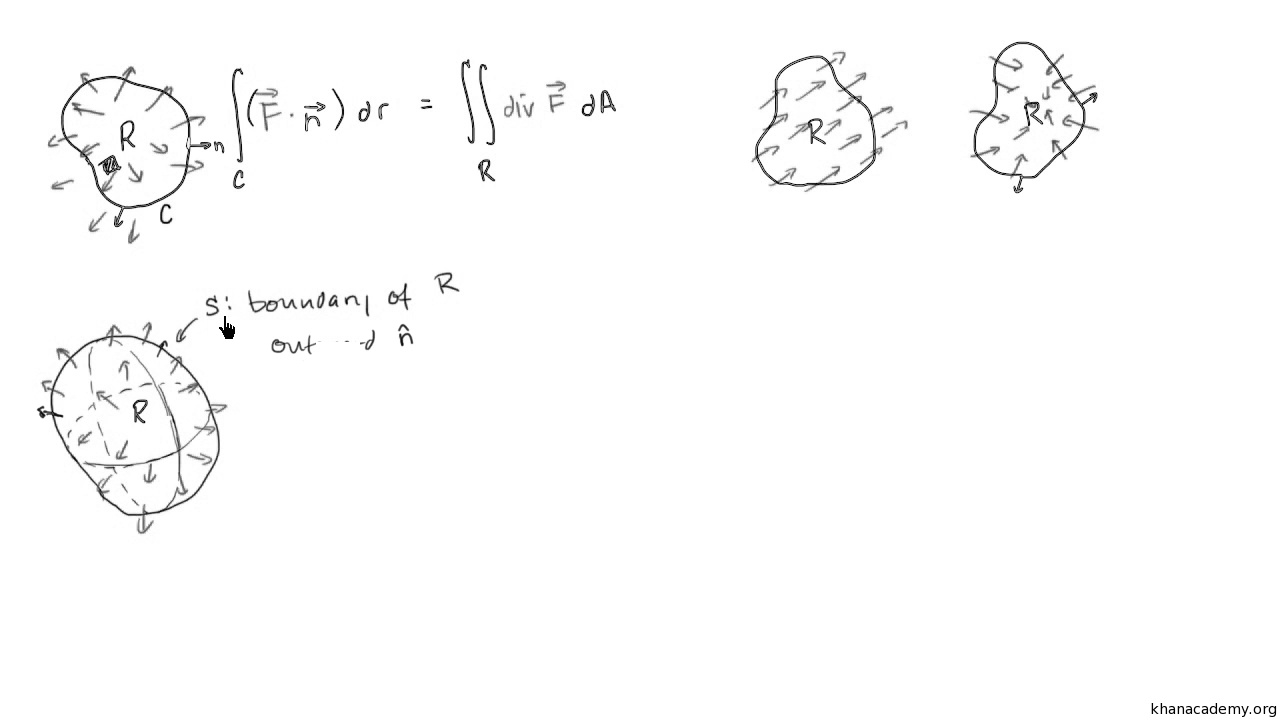 R
n
C
∫_C (F⃗ · n⃗) dr = ∬_R div F⃗ dA
R
R
S: boundary of R
n̂
R
khanacademy.org